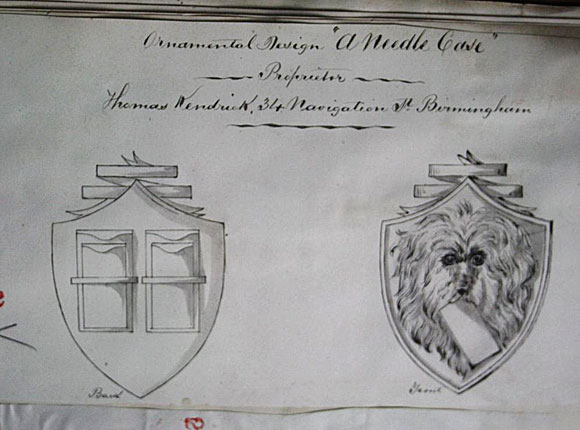 Ornamental Design "A Needle Case"
Proprietor
Thomas Kendrick, 34 Navigation St. Birmingham
Back
Front
2